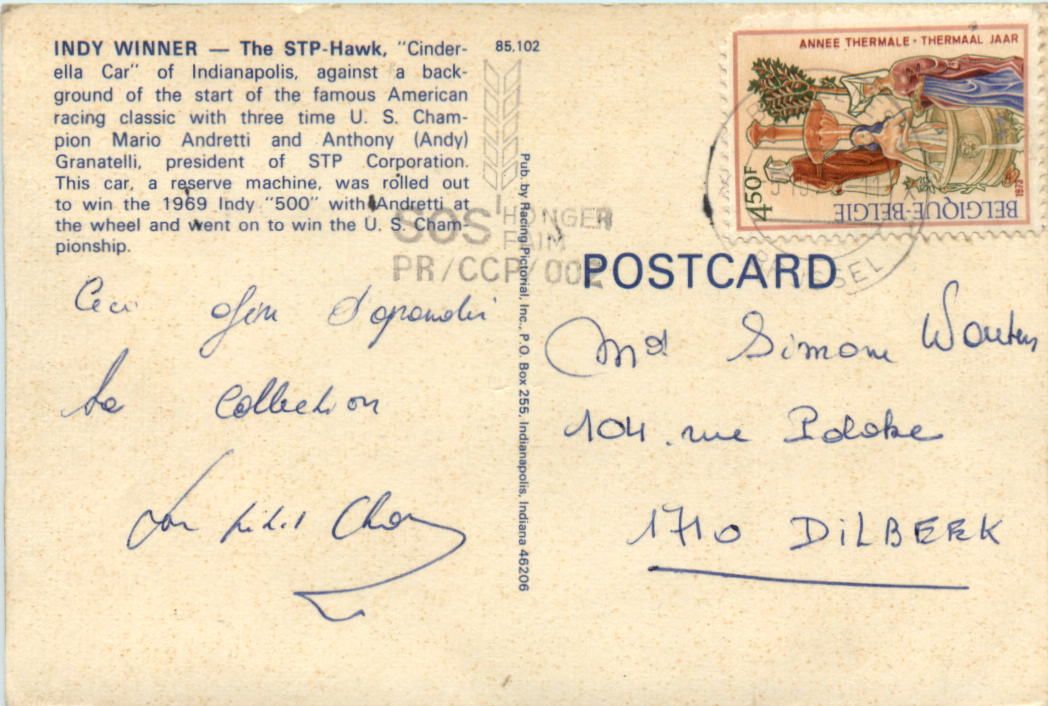 INDY WINNER — The STP-Hawk, "Cinder-
ella Car" of Indianapolis, against a back-
ground of the start of the famous American
racing classic with three time U. S. Cham-
pion Mario Andretti and Anthony (Andy)
Granatelli, president of STP Corporation.
This car, a reserve machine, was rolled out
to win the 1969 Indy "500" with Andretti at
the wheel and went on to win the U. S. Cham-
pionship.
85.102
Pub. by Racing Pictorial, Inc., P.O. Box 255, Indianapolis, Indiana 46206
SOS HONGER
FAIM
PR/CCP/002
ANNEE THERMALE - THERMAAL JAAR
4,50F
BELGIQUE-BELGIE
1973
POSTCARD
Ceci afin d'agrandir
ta Collection
Ton petit
Simone Wouters
104, rue
1710 DiLBEEK